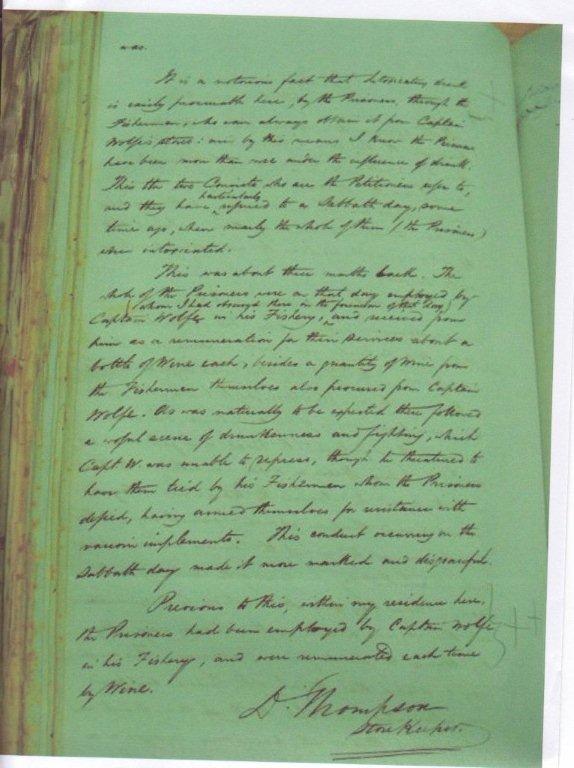 was.
It is a notorious fact that intoxicating drink
is easily procurable here, by the Prisoners, through the
Fishermen, who can always obtain it from Captain
Wolfe's stores: and by this means I know the Prisoners
have been more than once under the influence of drink.
This the two Convicts who are the Petitioners refer to,
and they have particularly referred to a Sabbath day, some
time ago, when nearly the whole of them (the Prisoners)
were intoxicated.
This was about three months back. The
whole of the Prisoners were on that day employed by
(whom I had observed there on the forenoon of that day)
Captain Wolfe in his Fishery, and received from
him as a remuneration for their services about a
bottle of Wine each, besides a quantity of Wine from
the Fishermen themselves also procured from Captain
Wolfe. As was naturally to be expected there followed
a woful scene of drunkenness and fighting, which
Capt W. was unable to repress, though he threatened to
have them tied by his Fishermen whom the Prisoners
defied, having armed themselves for resistance with
various implements. This conduct occurring on the
Sabbath day made it more marked and disgraceful.
Previous to this, within my residence here,
the Prisoners had been employed by Captain Wolfe
in his Fishery, and were remunerated each time
by Wine.
D. Thompson
Store Keeper.